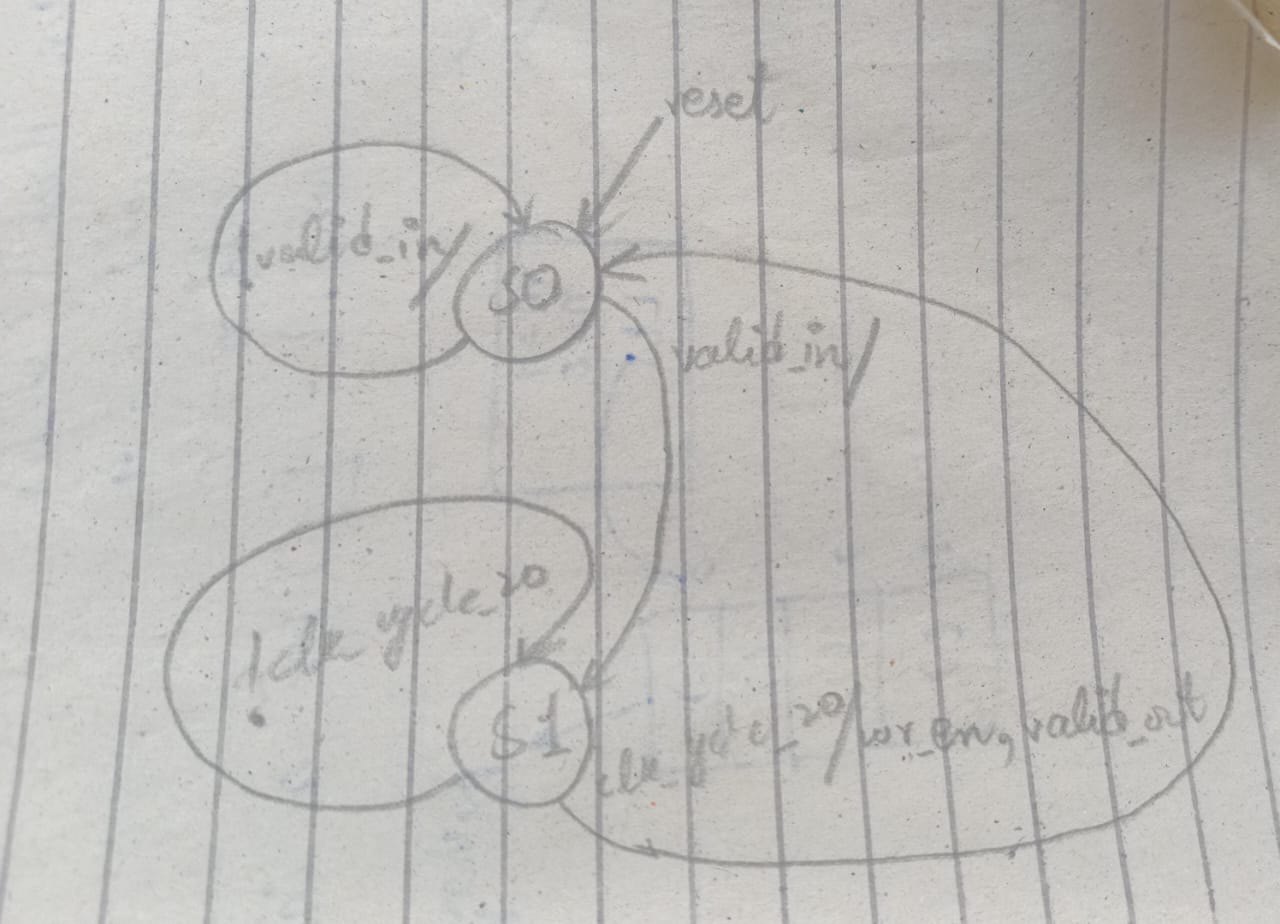 reset
!valid_in/
S0
valid_in/
!clk_cycle_20
S1
clk_cycle_20/wr_en, valid_out